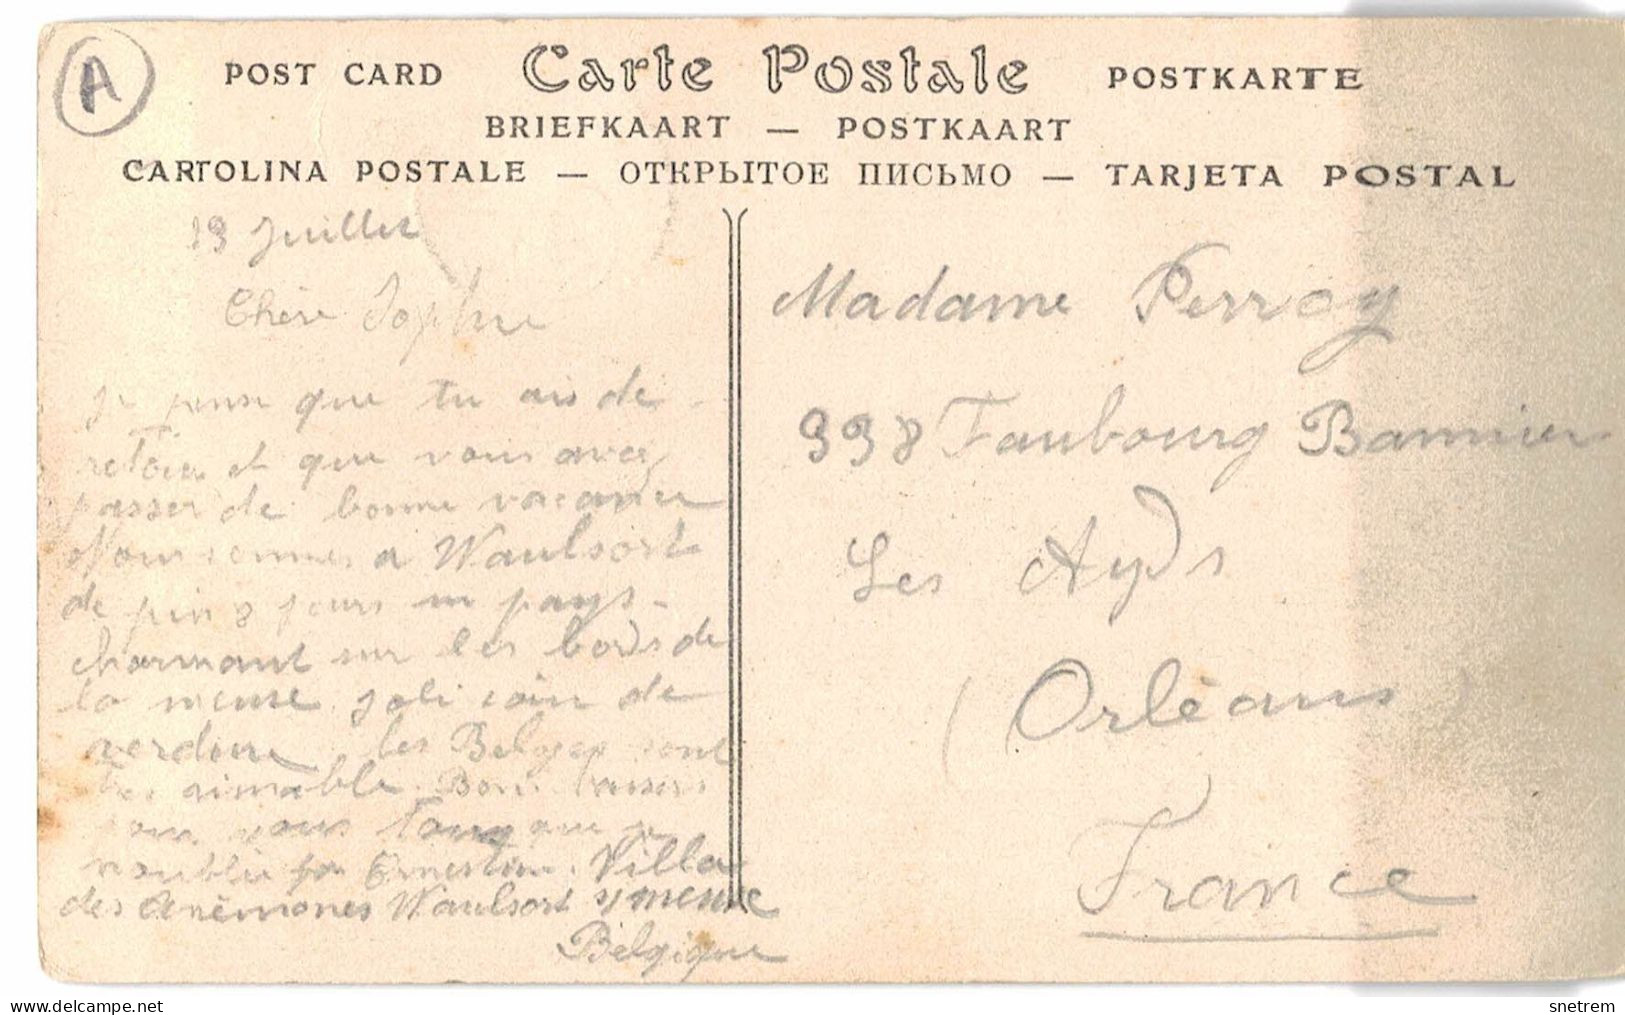 A
POST CARD Carte Postale POSTKARTE
BRIEFKAART — POSTKAART
CARTOLINA POSTALE — ОТКРЫТОЕ ПИСЬМО — TARJETA POSTAL
19 Juillet
Chère Sophie
je pense que tu ais de
retour et que vous avez
passer de bonne vacances
Nous sommes a Waulsort
de puis 8 jours un pays
charmant sur les bords de
la meuse joli coin de
verdure les Belges sont
très aimable Bons baisers
pour vous
Ernestine. Villa
des Anèmones Waulsort s/meuse
Belgique
Madame Perroy
998 Faubourg Bannier
Les Ayds
(Orlèans)
France
snetrem